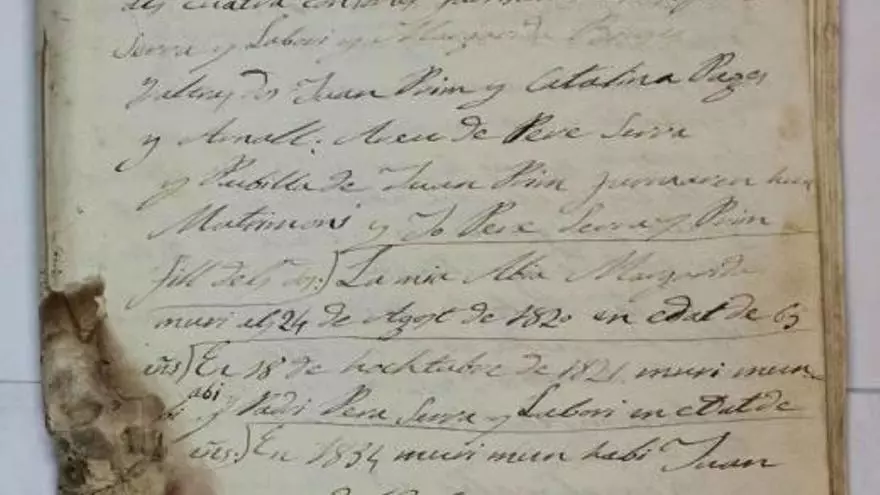 dels cuatra
Serra y Labori y Margarida
y altres dos Juan Prim y Catalina Pages
y Arnall: Areu de Pere Serra
y Pubilla de Juan Prim jumnaren hun
Matrimoni y Jo Pere Serra y Prim
fill dels dos:) La mia Abia Margarida
muri els 24 de Agost de 1820 en edat de 65
añs) En 18 de hochtubre de 1821 muri mun
abi
y Padri Pere Serra y Labori en edat de
añs:) En 1834 muri mun habi Juan